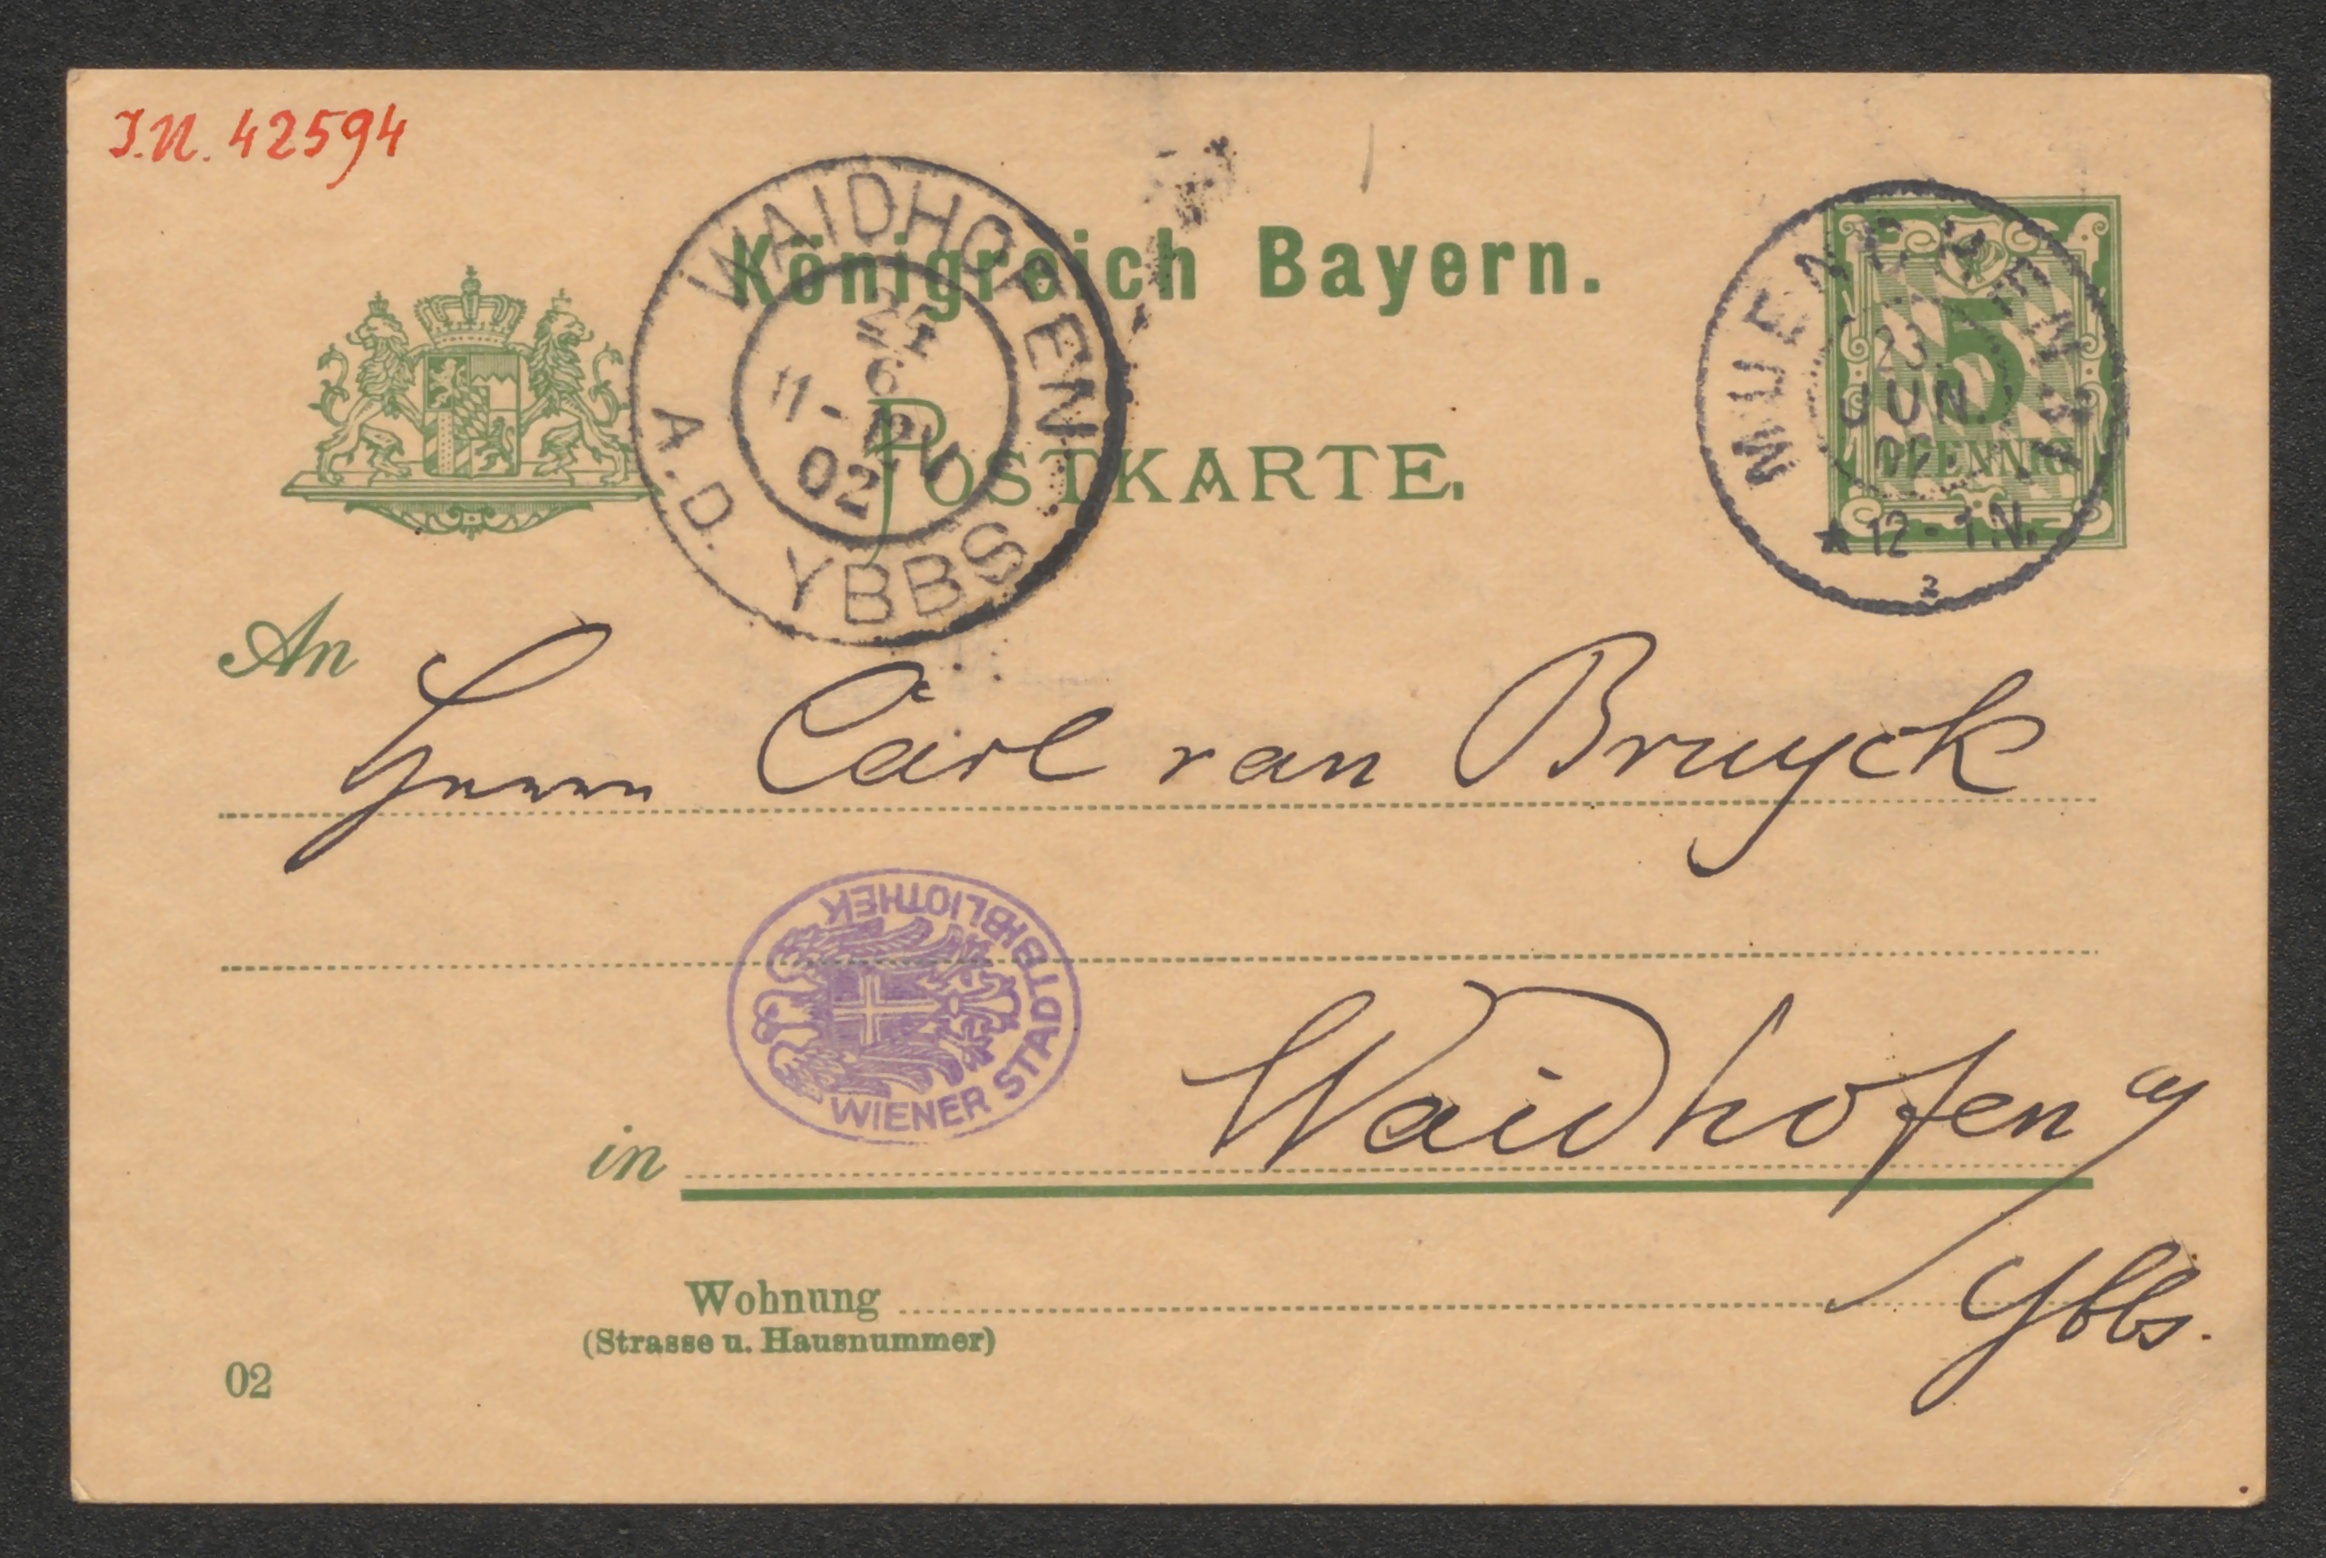 J.N. 42594
Königreich Bayern.
POSTKARTE.
WAIDHOFEN
A. D. YBBS
24
6
11-12N
02
MUENCHEN
23.
JUN.
02
★12-1N.
2
5
PFENNIG
An
Herrn Carl van Bruyck
WIENER STADTBIBLIOTHEK
in Waidhofen a/
Ybbs.
Wohnung
(Strasse u. Hausnummer)
02